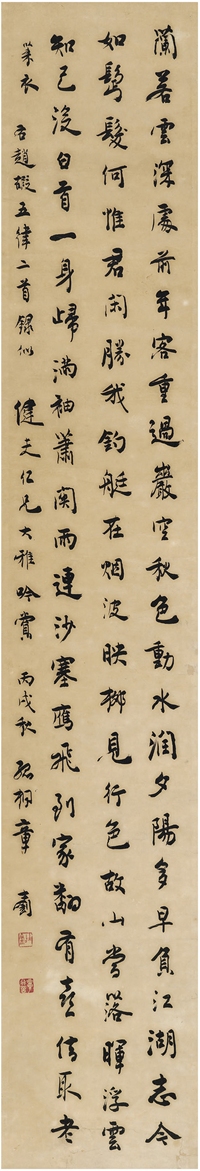 蘭若雲深處前年客重過巖空秋色動水闊夕陽多早負江湖志今
如鬢髮何惟君閑勝我釣艇在烟波映柳見行色故山當落暉浮雲
知己沒白首一身歸滿袖蕭關雨連沙塞鴈飛到家翻有喜借取老
萊衣 右趙嘏五律二首録似 健夫仁兄大雅吟賞 丙戌秋 孤桐章士釗